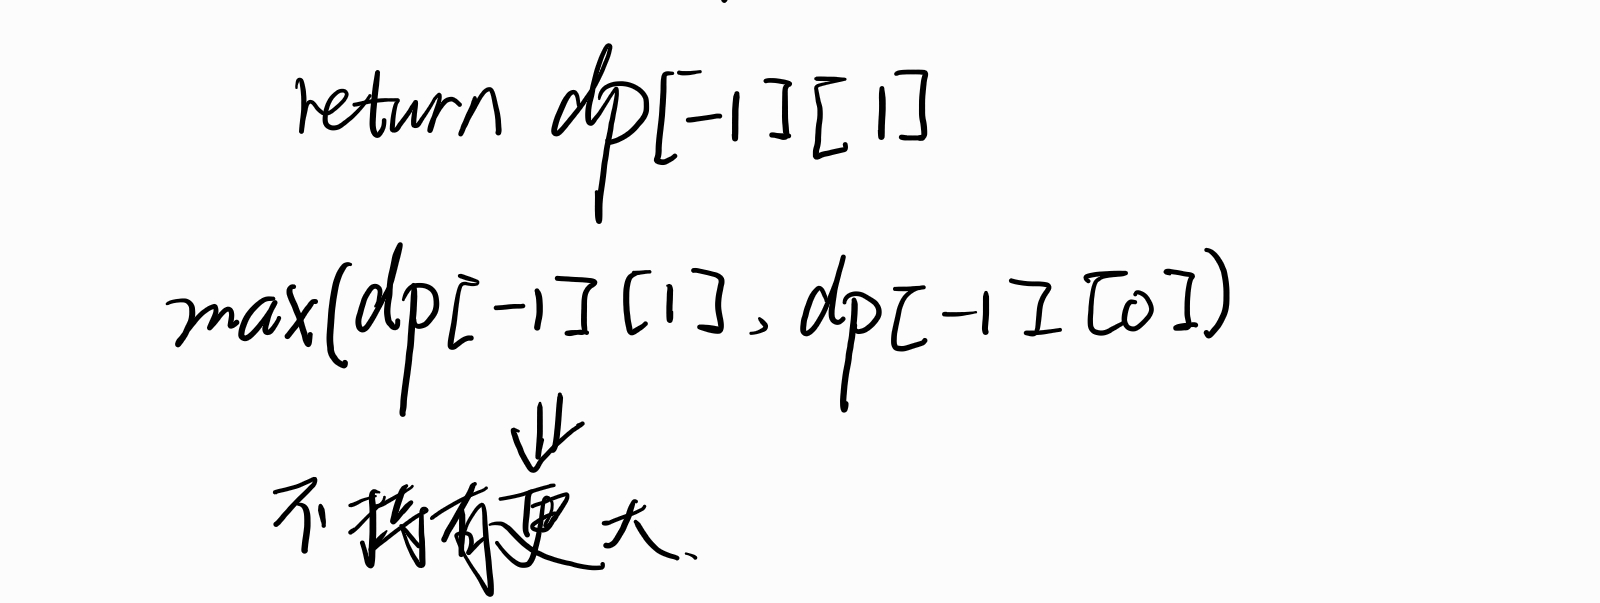 return dp[-1][1]
max(dp[-1][1], dp[-1][0])
不持有更大.